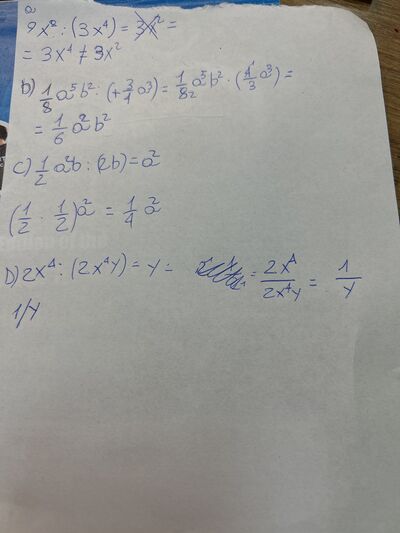 a
9x⁸ : (3x⁴) = 3x² =
= 3x⁴ ≠ 3x²
b) 1/8 a⁵b² : (+3/4 a³) = 1/8₂ a⁵b² · (4¹/3 a³) =
= 1/6 a²b²
c) 1/2 a²b : (2b) = a²
(1/2 · 1/2) a² = 1/4 a²
D) 2x⁴ : (2x⁴y) = y = = 2x⁴/2x⁴y = 1/y
1/y